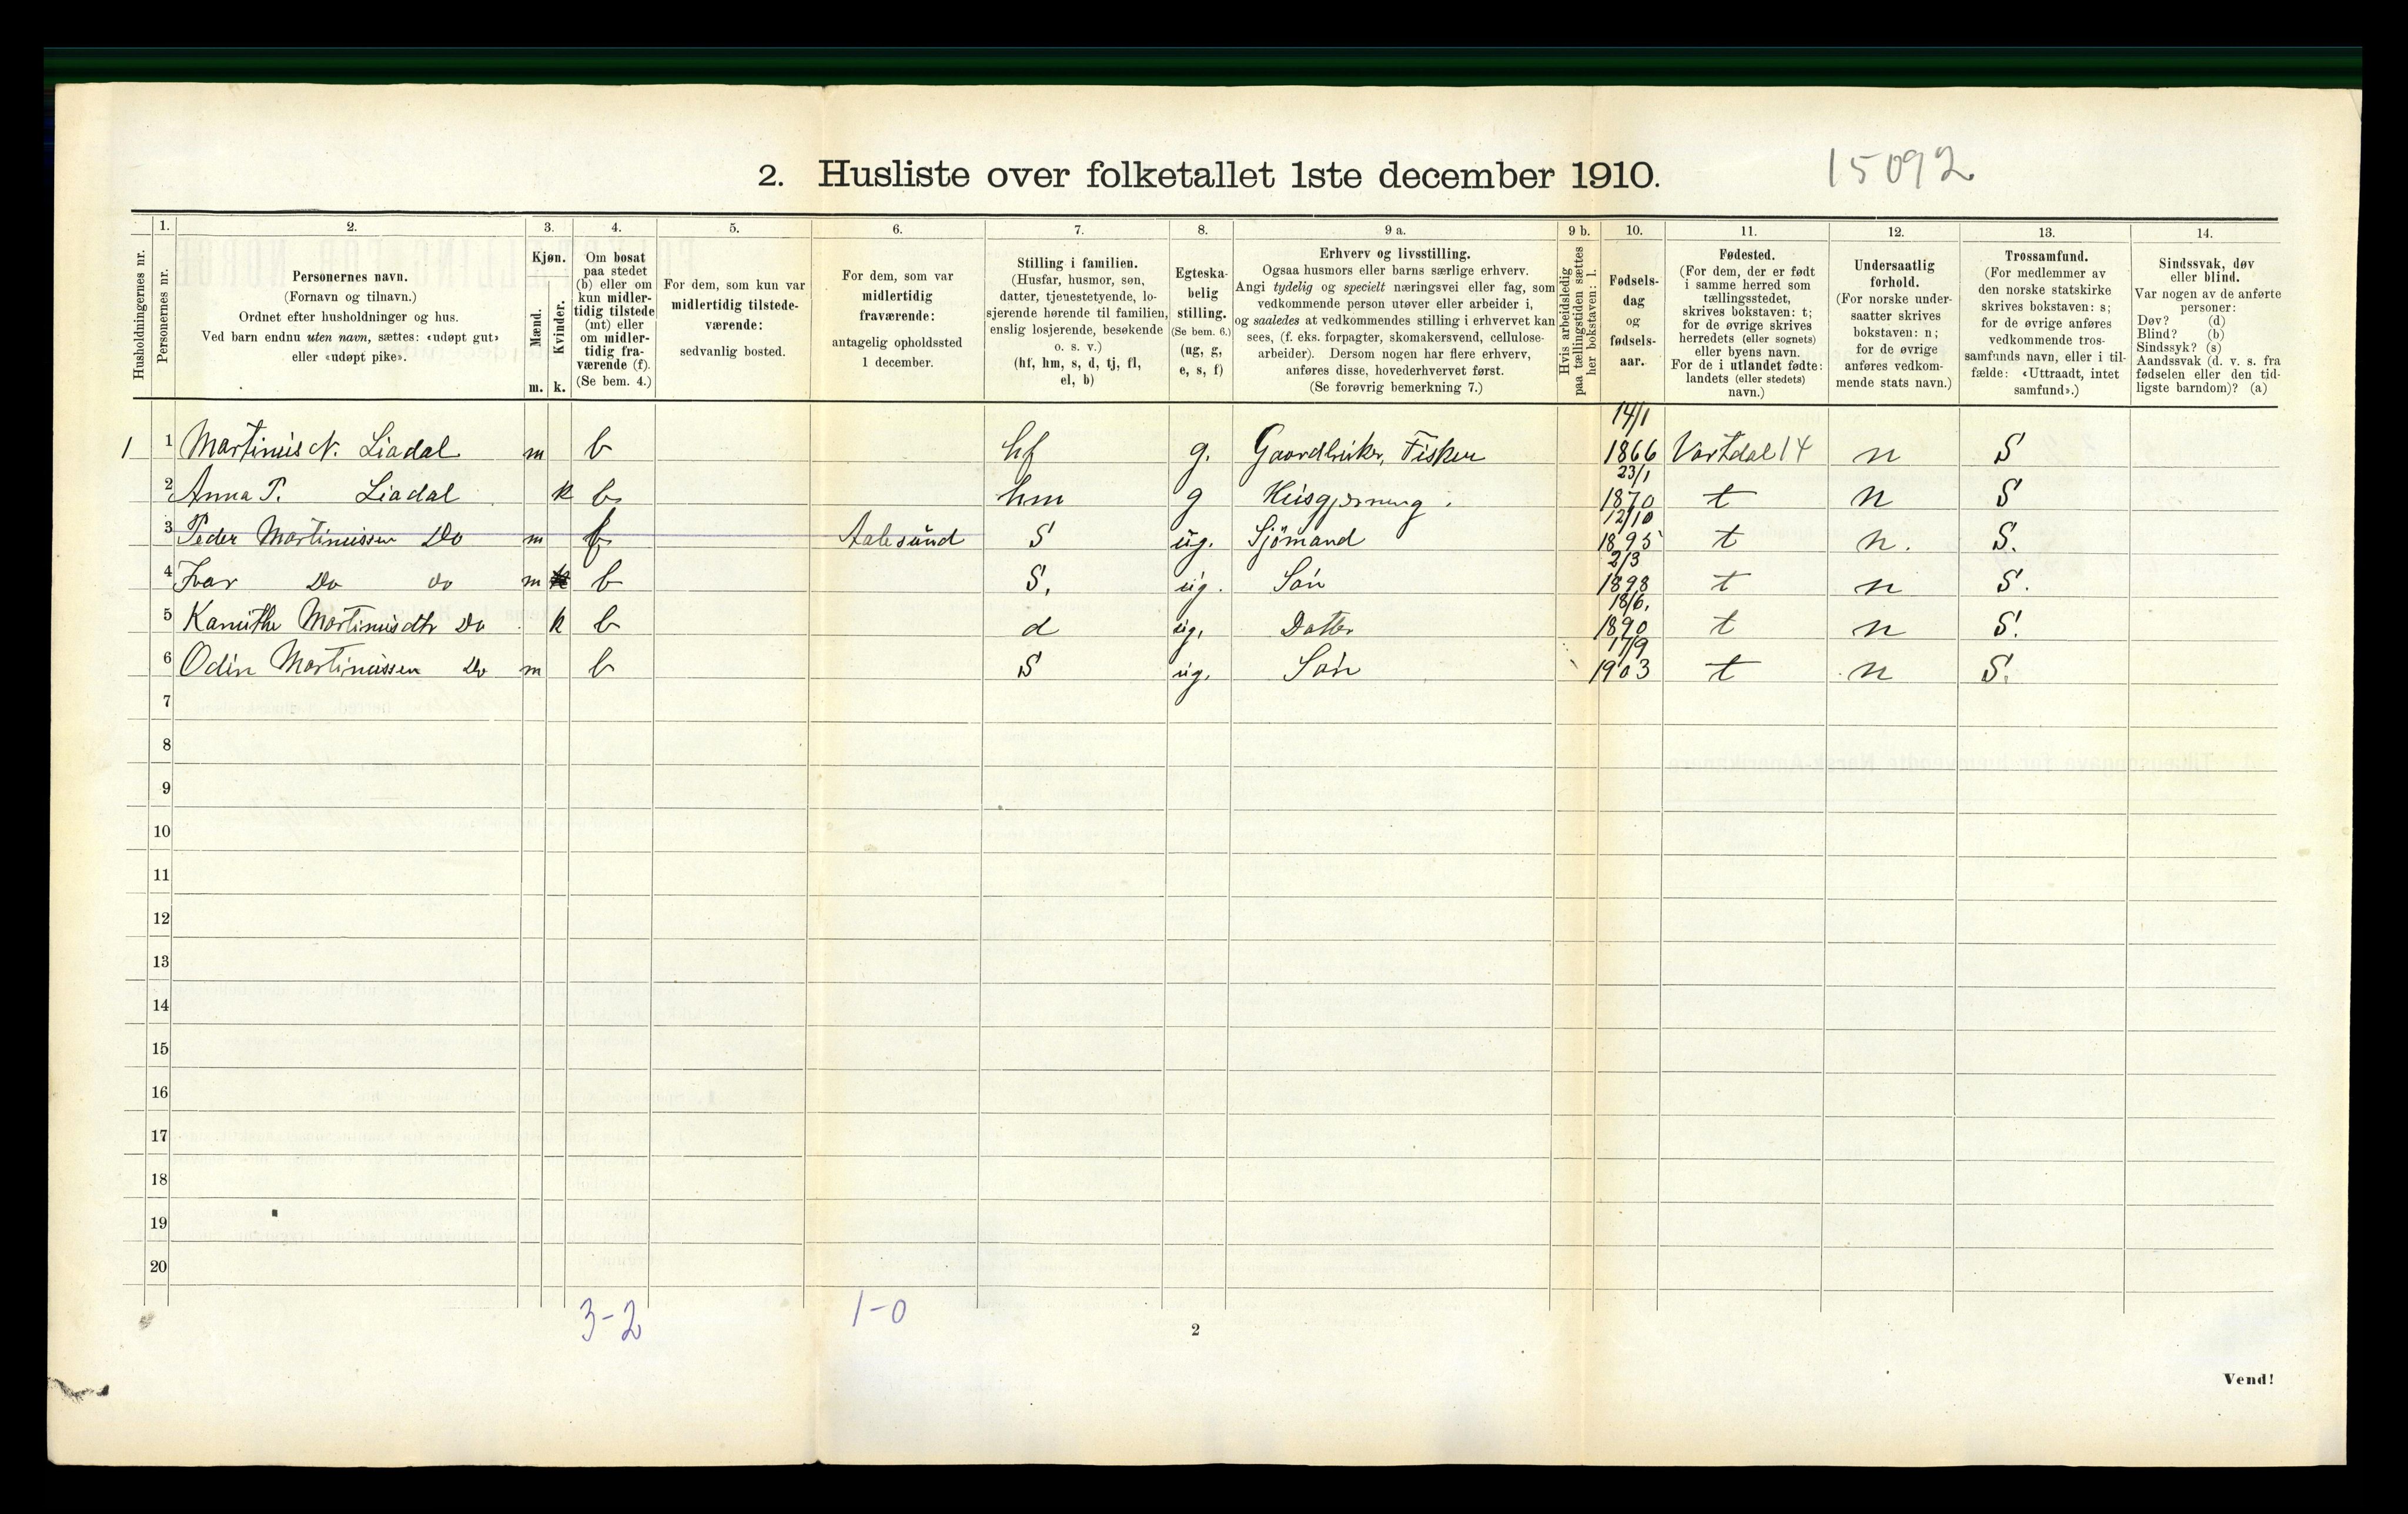 2. Husliste over folketallet 1ste december 1910.
15092
Husholdningernes nr.
1.
Personernes nr.
2.
Personernes navn.
(Fornavn og tilnavn.)
Ordnet efter husholdninger og hus.
Ved barn endnu uten navn, sættes: «udøpt gut»
eller «udøpt pike».
3.
Kjøn.
Mænd.
Kvinder.
m. k.
4.
Om bosat
paa stedet
(b) eller om
kun midler-
tidig tilstede
(mt) eller
om midler-
tidig fra-
værende (f).
(Se bem. 4.)
5.
For dem, som kun var
midlertidig tilstede-
værende:
sedvanlig bosted.
6.
For dem, som var
midlertidig
fraværende:
antagelig opholdssted
1 december.
7.
Stilling i familien.
(Husfar, husmor, søn,
datter, tjenestetyende, lo-
sjerende hørende til familien,
enslig losjerende, besøkende
o. s. v.)
(hf, hm, s, d, tj, fl,
el, b)
8.
Egteska-
belig
stilling.
(Se bem. 6.)
(ug, g,
e, s, f)
9 a.
Erhverv og livsstilling.
Ogsaa husmors eller barns særlige erhverv.
Angi tydelig og specielt næringsvei eller fag, som
vedkommende person utøver eller arbeider i,
og saaledes at vedkommendes stilling i erhvervet kan
sees, (f. eks. forpagter, skomakersvend, cellulose-
arbeider). Dersom nogen har flere erhverv,
anføres disse, hovederhvervet først.
(Se forøvrig bemerkning 7.)
9 b.
Hvis arbeidsledig
paa tællingstiden sættes
her bokstaven: l.
10.
Fødsels-
dag
og
fødsels-
aar.
11.
Fødested.
(For dem, der er født
i samme herred som
tællingsstedet,
skrives bokstaven: t;
for de øvrige skrives
herredets (eller sognets)
eller byens navn.
For de i utlandet fødte:
landets (eller stedets)
navn.)
12.
Undersaatlig
forhold.
(For norske under-
saatter skrives
bokstaven: n;
for de øvrige
anføres vedkom-
mende stats navn.)
13.
Trossamfund.
(For medlemmer av
den norske statskirke
skrives bokstaven: s;
for de øvrige anføres
vedkommende tros-
samfunds navn, eller i til-
fælde: «Uttraadt, intet
samfund».)
14.
Sindssvak, døv
eller blind.
Var nogen av de anførte
personer:
Døv? (d)
Blind? (b)
Sindssyk? (s)
Aandssvak (d. v. s. fra
fødselen eller den tid-
ligste barndom)? (a)
1 1 Martinus N. Liadal m b hf g. Gaardbruker, Fisker 14/1 1866 Vartdal 14 n S
2 Anna P. Liadal k b hm g Husgjerning. 23/1 1870 t n S
3 Peder Martinussen Do m f Aalesund S ug. Sjömand 12/10 1895 t n. S.
4 Ivar Do do m b S, ug. Søn 2/3 1898 t n S.
5 Martinusdtr Do k b d ug, Datter 18/6. 1890 t n S.
6 Odin Martinussen Do m b S ug. Søn 17/9 1903 t n S.
7
8
9
10
11
12
13
14
15
16
17
18
19
20
3-2 1-0
2
Vend!